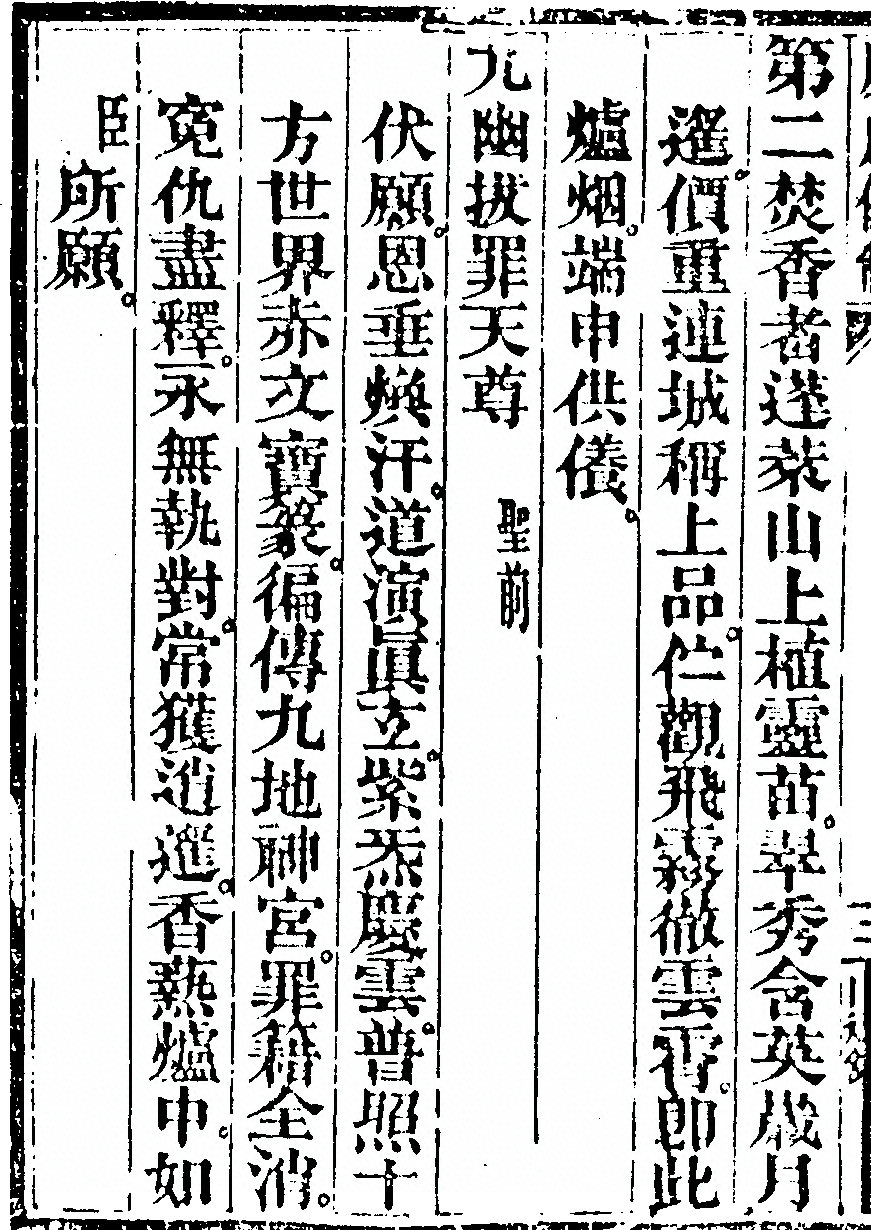 第二焚香者蓬萊山上植靈苗。翠秀含英歲月
遥。價重連城稱上品。伫觀飛霧徹雲霄。即此
爐烟。端申供儀。
九幽拔罪天尊 聖前
伏願。恩垂煥汗。道演眞立。紫炁慶雲。普照十
方世界赤文寶篆。徧傳九地神宮。罪籍全消。
寃仇盡釋。永無執對。常獲逍遥。香爇爐中。如
臣所願。